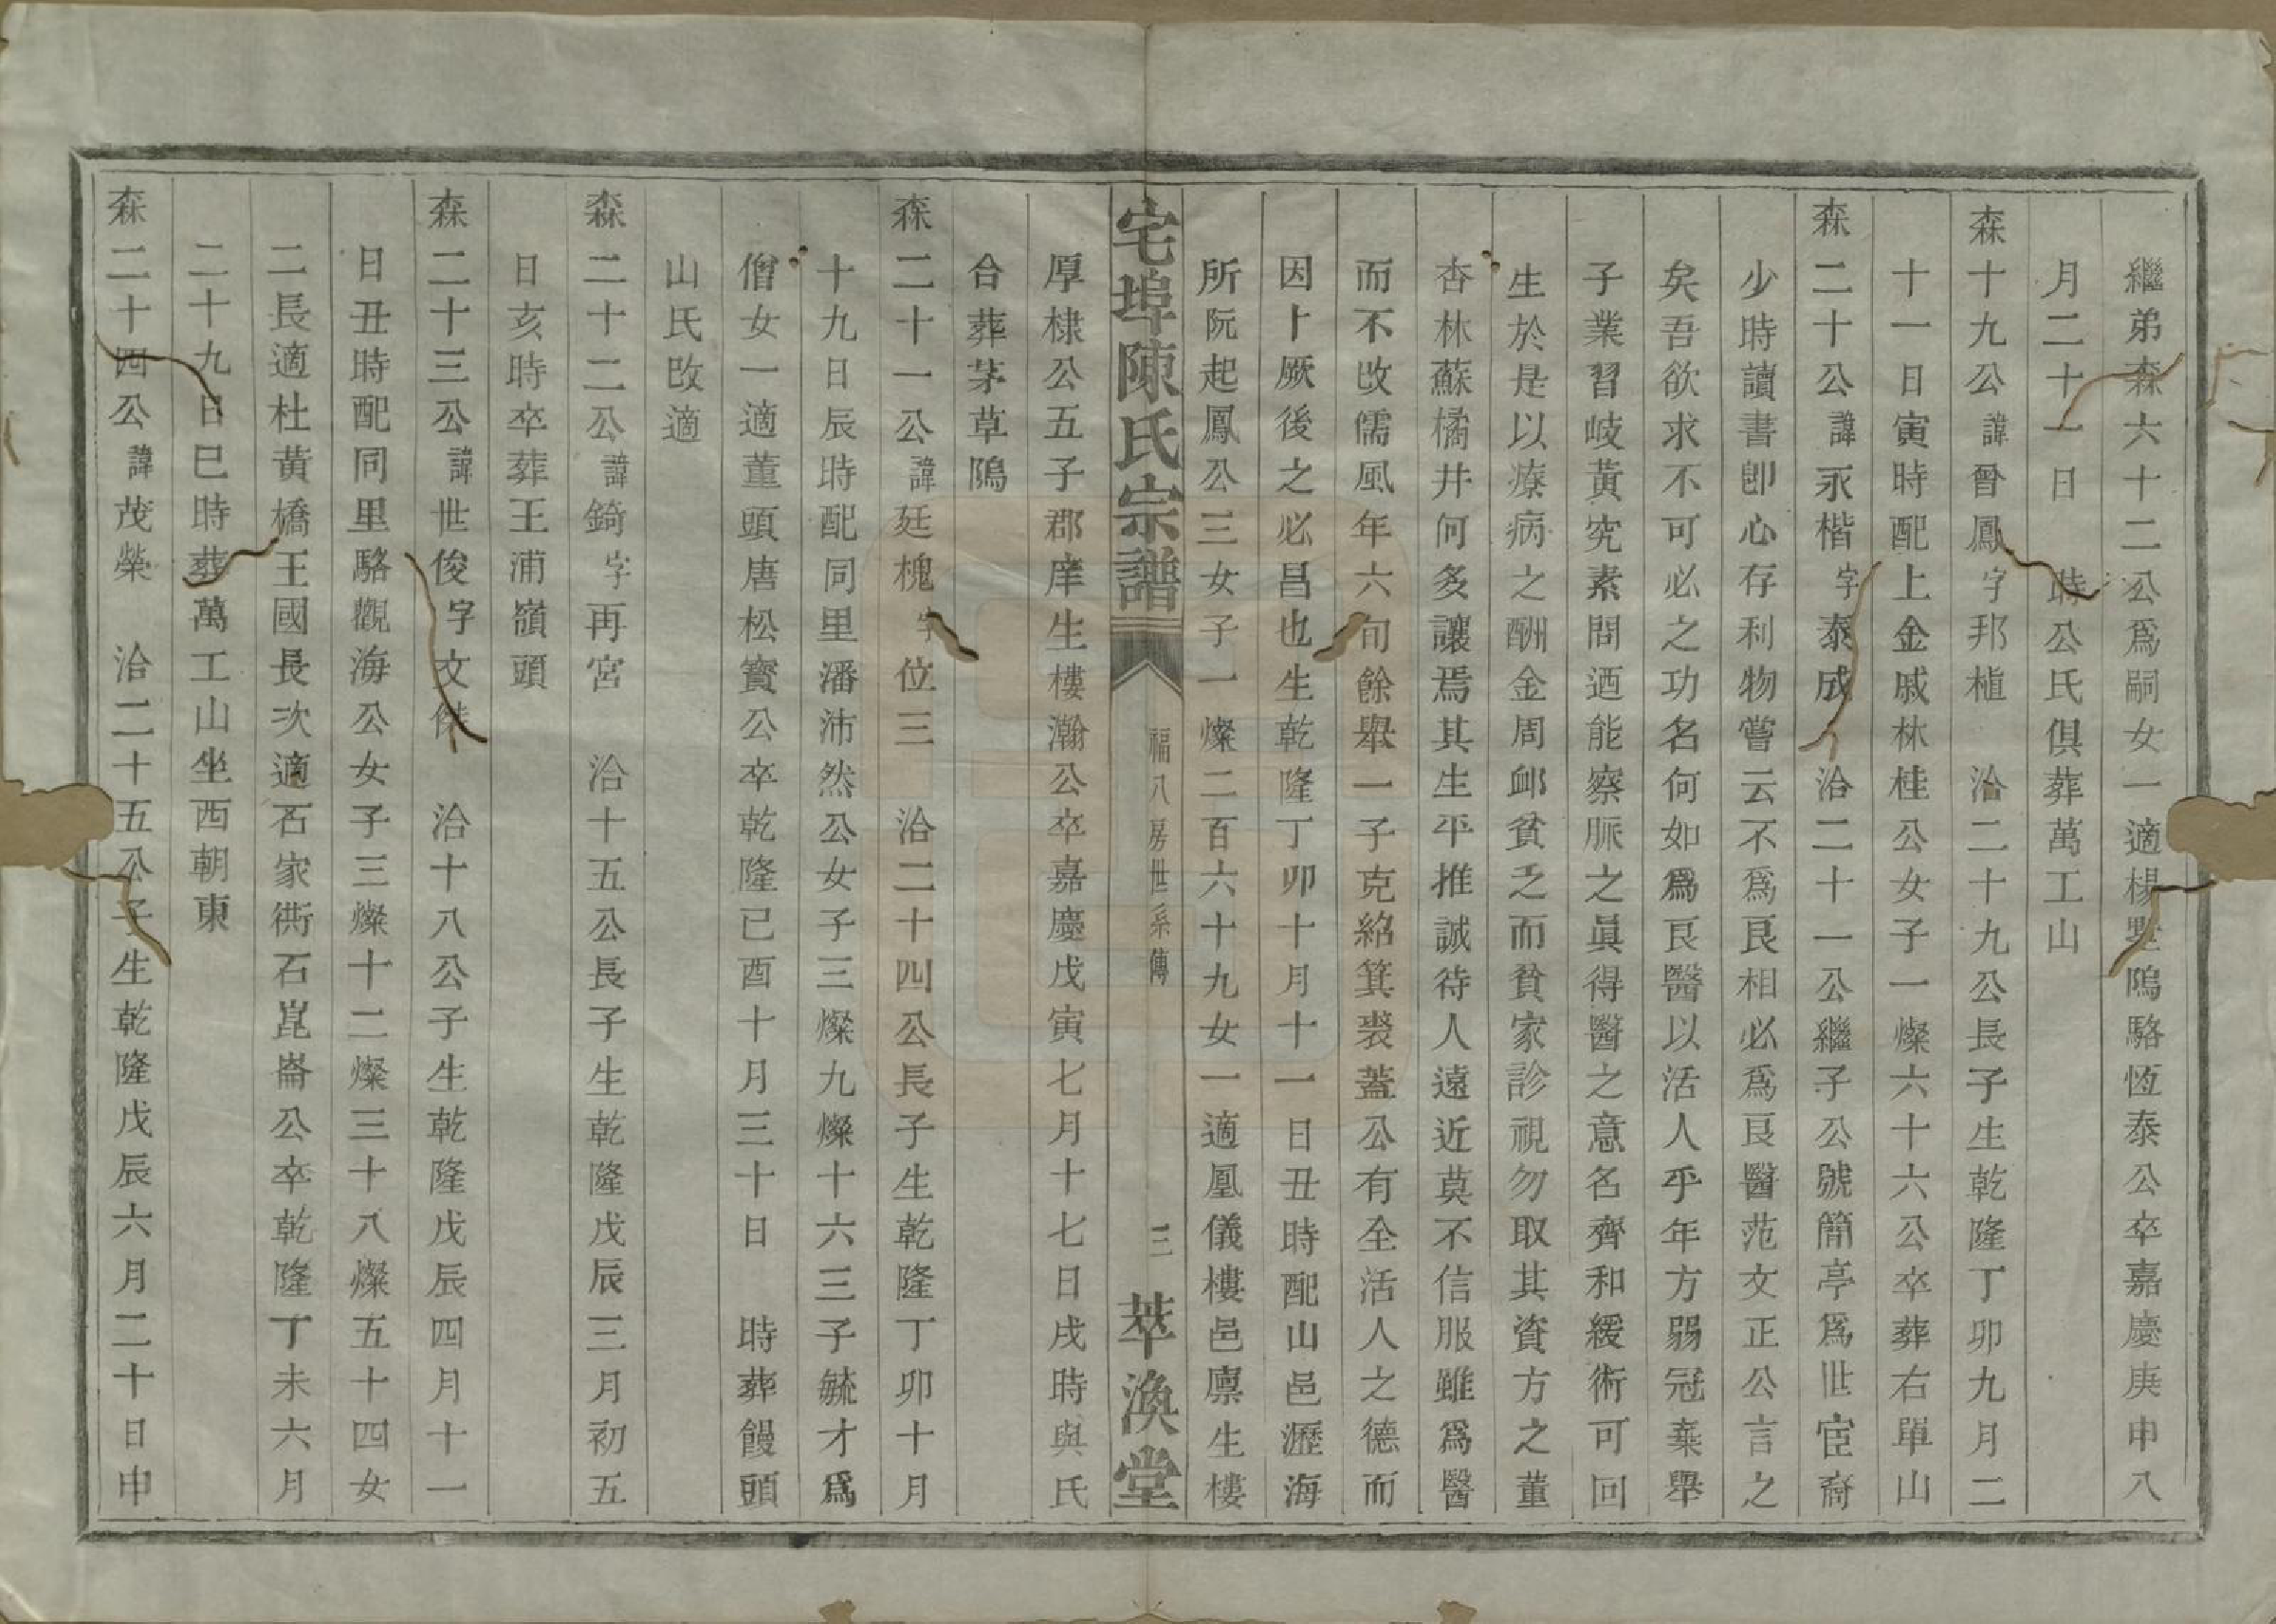 繼弟森六十二公爲嗣女一適楊墅隖駱恆泰公卒嘉慶庚申八
月二十一日　時公氏俱葬萬工山
森十九公諱曾鳳字邦植　洽二十九公長子生乾隆丁卯九月二
十一日寅時配上金戚林桂公女子一燦六十六公卒葬右單山
森二十公諱永楷字泰成　洽二十一公繼子公號簡亭爲世宦裔
少時讀書卽心存利物嘗云不爲良相必爲良醫范文正公言之
矣吾欲求不可必之功名何如爲良醫以活人乎年方弱冠棄舉
子業習岐黃究素問迺能察脈之眞得醫之意名齊和緩術可回
生於是以療病之酬金周卹貧乏而貧家診視勿取其資方之董
杏林蘇橘井何多讓焉其生平推誠待人遠近莫不信服雖爲醫
而不改儒風年六旬餘舉一子克紹箕裘蓋公有全活人之德而
因卜厥後之必昌也生乾隆丁卯十月十一日丑時配山邑瀝海
所阮起鳳公三女子一燦二百六十九女一適凰儀樓邑廩生樓
宅埠陳氏宗譜　福八房世系傳　三　萃渙堂
厚棣公五子郡庠生樓瀚公卒嘉慶戊寅七月十七日戌時與氏
合葬茅草隖
森二十一公諱廷槐字位三　洽二十四公長子生乾隆丁卯十月
十九日辰時配同里潘沛然公女子三燦九燦十六三子毓才爲
僧女一適董頭唐松寳公卒乾隆己酉十月三十日　時葬饅頭
山氏改適
森二十二公諱錡字再宮　洽十五公長子生乾隆戊辰三月初五
日亥時卒葬王浦嶺頭
森二十三公諱世俊字文傑　洽十八公子生乾隆戊辰四月十一
日丑時配同里駱觀海公女子三燦十二燦三十八燦五十四女
二長適杜黃橋王國長次適石家衖石崑崙公卒乾隆丁未六月
二十九日巳時葬萬工山坐西朝東
森二十四公諱茂榮　洽二十五公子生乾隆戊辰六月二十日申